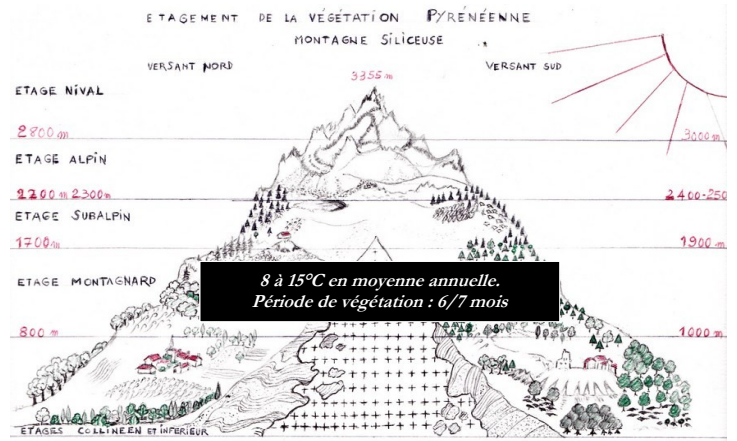 ETAGEMENT DE LA VÉGÉTATION PYRÉNÉENNE
MONTAGNE SILICEUSE
VERSANT NORD
VERSANT SUD
3355 m
ETAGE NIVAL
2800 m
3000 m
ETAGE ALPIN
2200 m 2300 m
2400-250
ETAGE SUBALPIN
1700 m
1900 m
ETAGE MONTAGNARD
8 à 15°C en moyenne annuelle.
Période de végétation : 6/7 mois
800 m
1000 m
ETAGES COLLINEEN ET INFERIEUR